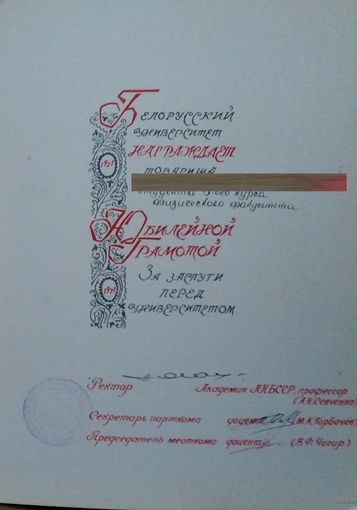 Белорусский
университет
награждает
товарища
студента 5-ого курса
физического факультета
1921
Юбилейной
Грамотой
За заслуги
перед
университетом
1971
Ректор Академик АН БССР, профессор
(А.Н. Севченко)
Секретарь парткома доцент (М.К. Горбачев)
Председатель месткома доцент (В.Ф. Чагир.)